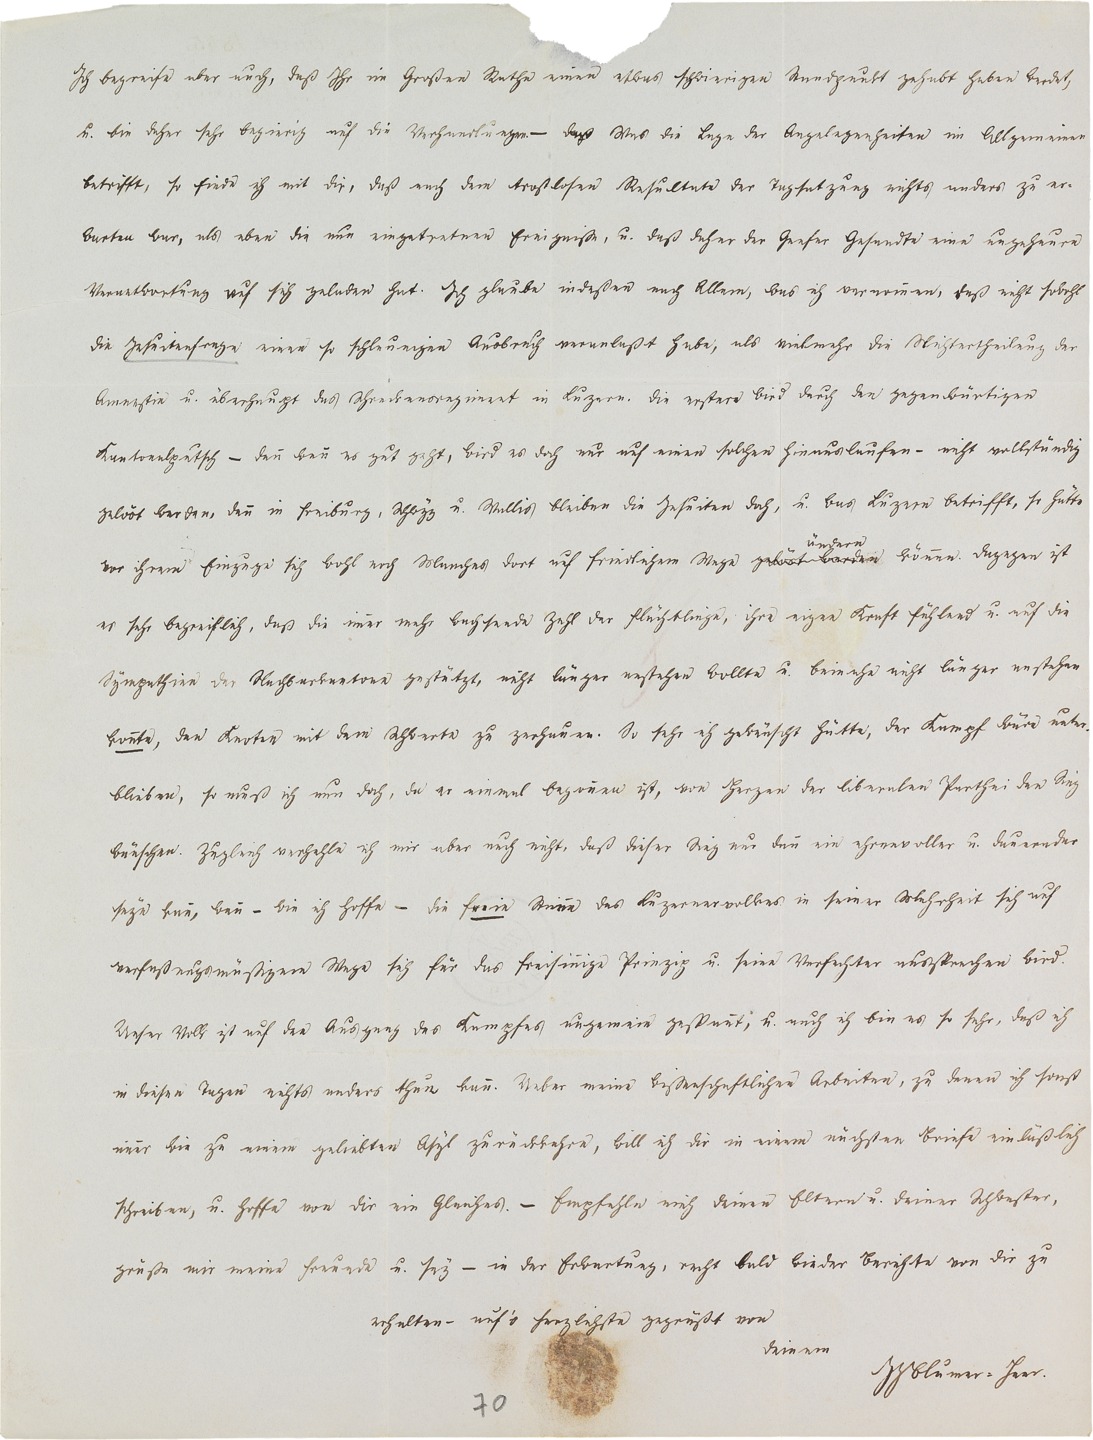 Ich begreife aber auch, daß Ihr im Großen Rathe einen etwas schwierigen Standpunkt gehabt haben werdet,
u. bin daher sehr begierig auf die Verhandlungen. – Was die Lage der Angelegenheiten im Allgemeinen
betrifft, so finde ich mit dir, daß nach dem trostlosen Resultate der Tagsatzung nichts anders zu er-
warten war, als eben die nun eingetretnen Ereignisse, u. daß daher der Genfer Gesandte eine ungeheure
Verantwortung auf sich geladen hat. Ich glaube indessen nach Allem, was ich vernom̄en, daß nicht sowohl
die Jesuitenfrage einen so schleunigen Ausbruch veranlaßt habe, als vielmehr die Nichtertheilung der
Amnestie u. überhaupt das Schreckensregiment in Luzern. Die erstere wird durch den gegenwärtigen
Kantonalputsch – den̄ wen̄ es gut geht, wird es doch nur auf einen solchen hinauslaufen – nicht vollständig
gelöst werden, den̄ in Freiburg, Schwyz u. Wallis bleiben die Jesuiten doch, u. was Luzern betrifft, so hätte
vor ihrem Einzuge sich wohl noch Manches dort auf friedlichem Wege gelöst werden ändern kön̄en. Dagegen ist
es sehr begreiflich, daß die im̄er mehr wachsende Zahl der Flüchtlinge, ihre eigne Kraft fühlend u. auf die
Sympathien der Nachbarkantone gestützt, nicht länger anstehen wollte u. beinahe nicht länger anstehen
kon̄te, den Knoten mit dem Schwerte zu zerhauen. So sehr ich gewünscht hätte, der Kampf wäre unter-
blieben, so muß ich nun doch, da er einmal begon̄en ist, von Herzen der liberalen Parthei den Sieg
wünschen. Zugleich verhehle ich mir aber auch nicht, daß dieser Sieg nur dan̄ ein ehrenvoller u. dauernder
seyn kan̄, wen̄ – wie ich hoffe – die freie Stim̄e des Luzernervolkes in seiner Mehrheit sich auf
verfaßungsmäßigem Wege sich für das freisin̄ige Prinzip u. seine Verfechter aussprechen wird.
Unser Volk ist auf den Ausgang des Kampfes ungemein gespan̄t, u. auch ich bin es so sehr, daß ich
in diesen Tagen nichts anders thun kan̄. Ueber meine wissenschaftlichen Arbeiten, zu denen ich sonst
im̄er wie zu einem geliebten Asyl zurückkehre, will ich dir in einem nächsten Briefe einläßlich
schreiben, u. hoffe von dir ein Gleiches. – Empfehle mich deinen Eltern u. deiner Schwester,
grüße mir meine Freunde u. sey – in der Erwartung, recht bald wieder Berichte von dir zu
erhalten – auf's herzlichste gegrüßt von
deinem
JJBlumer-Heer.
70